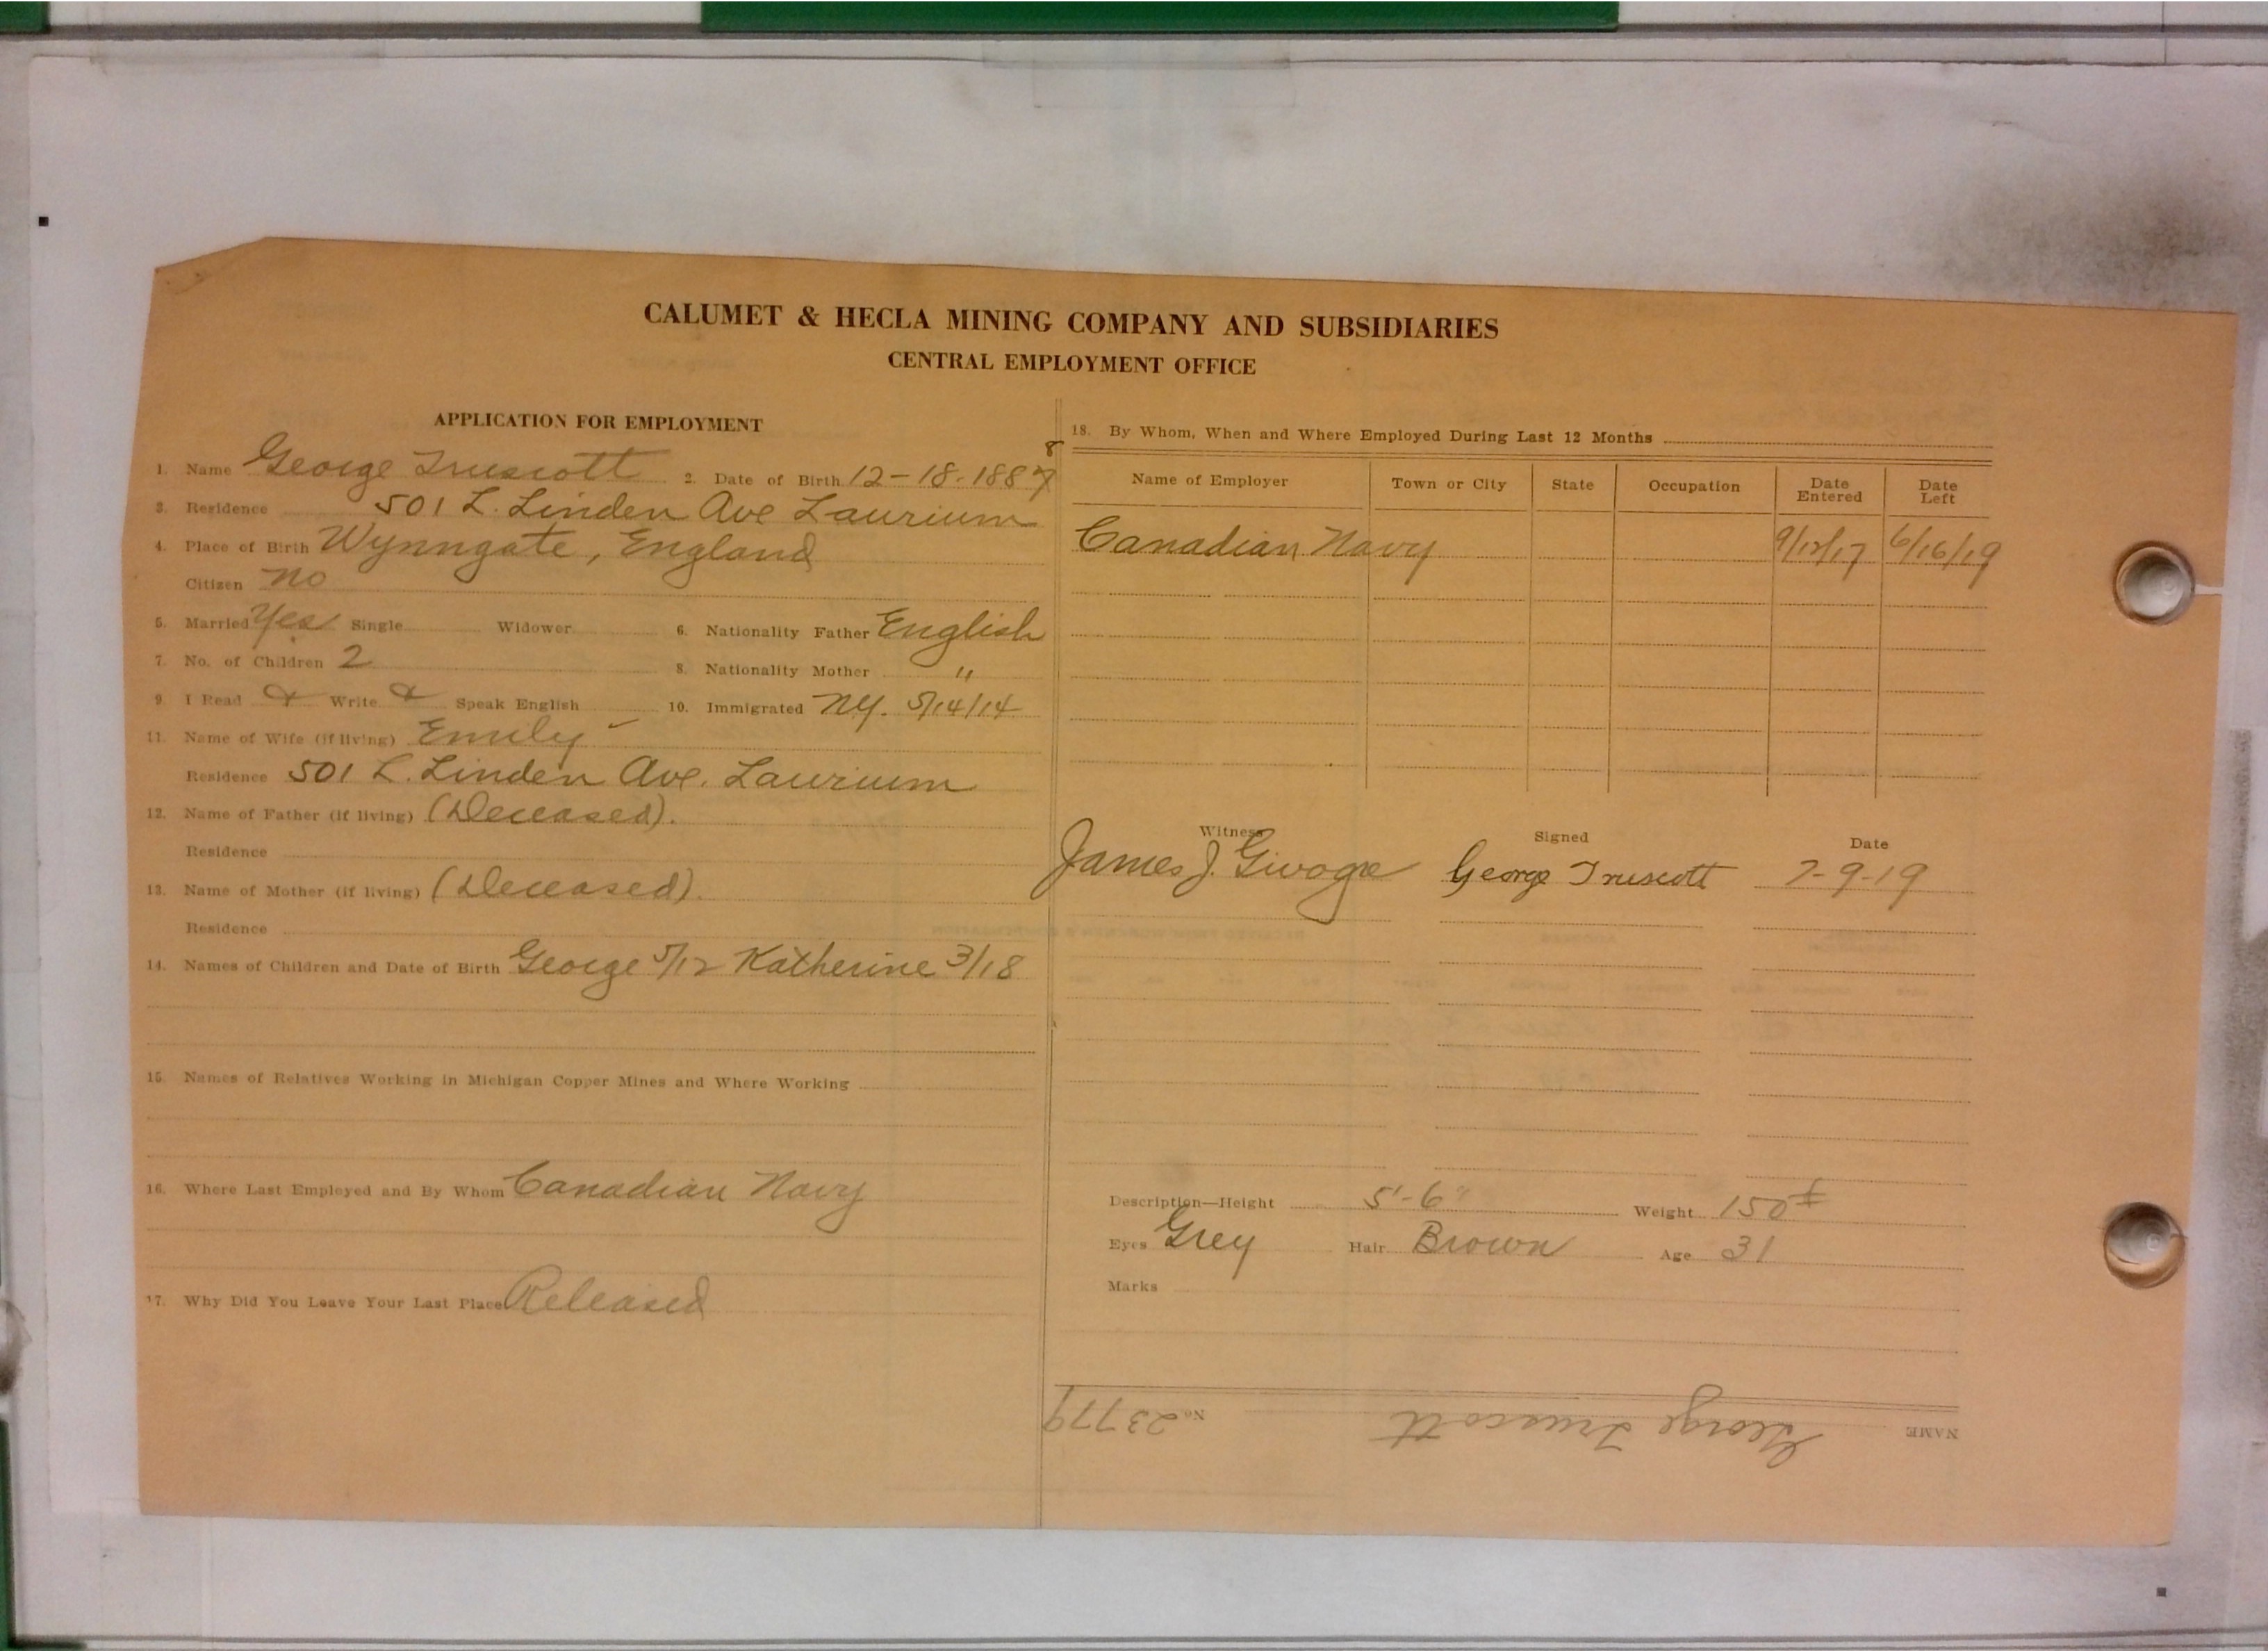 CALUMET & HECLA MINING COMPANY AND SUBSIDIARIES
CENTRAL EMPLOYMENT OFFICE
APPLICATION FOR EMPLOYMENT
1. Name George Truscott 2. Date of Birth 12-18-1887 8
3. Residence 501 L. Linden Ave Laurium
4. Place of Birth Wynngate, England
Citizen no
5. Married Yes Single Widower 6. Nationality Father English
7. No. of Children 2 8. Nationality Mother "
9. I Read & Write & Speak English 10. Immigrated NY. 5/14/14
11. Name of Wife (if living) Emily
Residence 501 L. Linden Ave. Laurium
12. Name of Father (if living) (Deceased).
Residence
13. Name of Mother (if living) (Deceased).
Residence
14. Names of Children and Date of Birth George 5/12 Katherine 3/18
15. Names of Relatives Working in Michigan Copper Mines and Where Working
16. Where Last Employed and By Whom Canadian Navy
17. Why Did You Leave Your Last Place Released
18. By Whom, When and Where Employed During Last 12 Months
Name of Employer Town or City State Occupation Date Entered Date Left
Canadian Navy 9/12/17 6/16/19
Witness Signed Date
James J. George Truscott 7-9-19
Description—Height 5'-6" Weight 150 ±
Eyes Grey Hair Brown Age 31
Marks
NAME George Truscott No. 23779